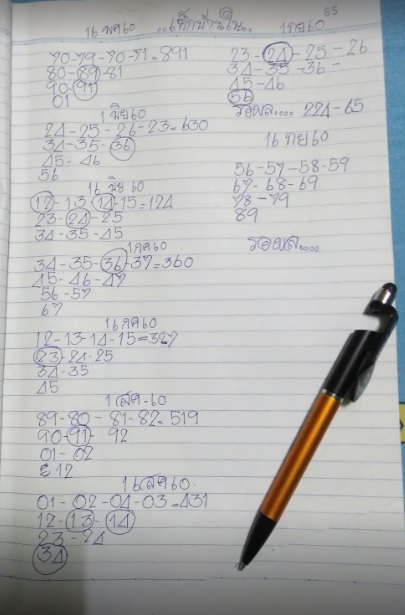 16 พค 60 ...เด็กบ้านใน..
90-79-70-71=891
80-89-81
90-91
01
1 มิย 60
24-25-26-23=630
34-35-36
45-46
56
16 มิย 60
12-13-14-15=124
23-24-25
34-35-45
1 กค 60
34-35-36-37=360
45-46-47
56-57
67
16 กค 60
12-13-14-15=327
23-24-25
34-35
45
1 สค.60
89-80-81-82=519
90-91- 92
01-02
12
16 สค 60.
01-02-04-03=431
12-13-14
23-24
34
1 กย 60 55
23-24-25-26
34-35-36-
45-46
56
รอผล.... 224-65
16 กย 60
56-57-58-59
67-68-69
78-79
89
รอผล....